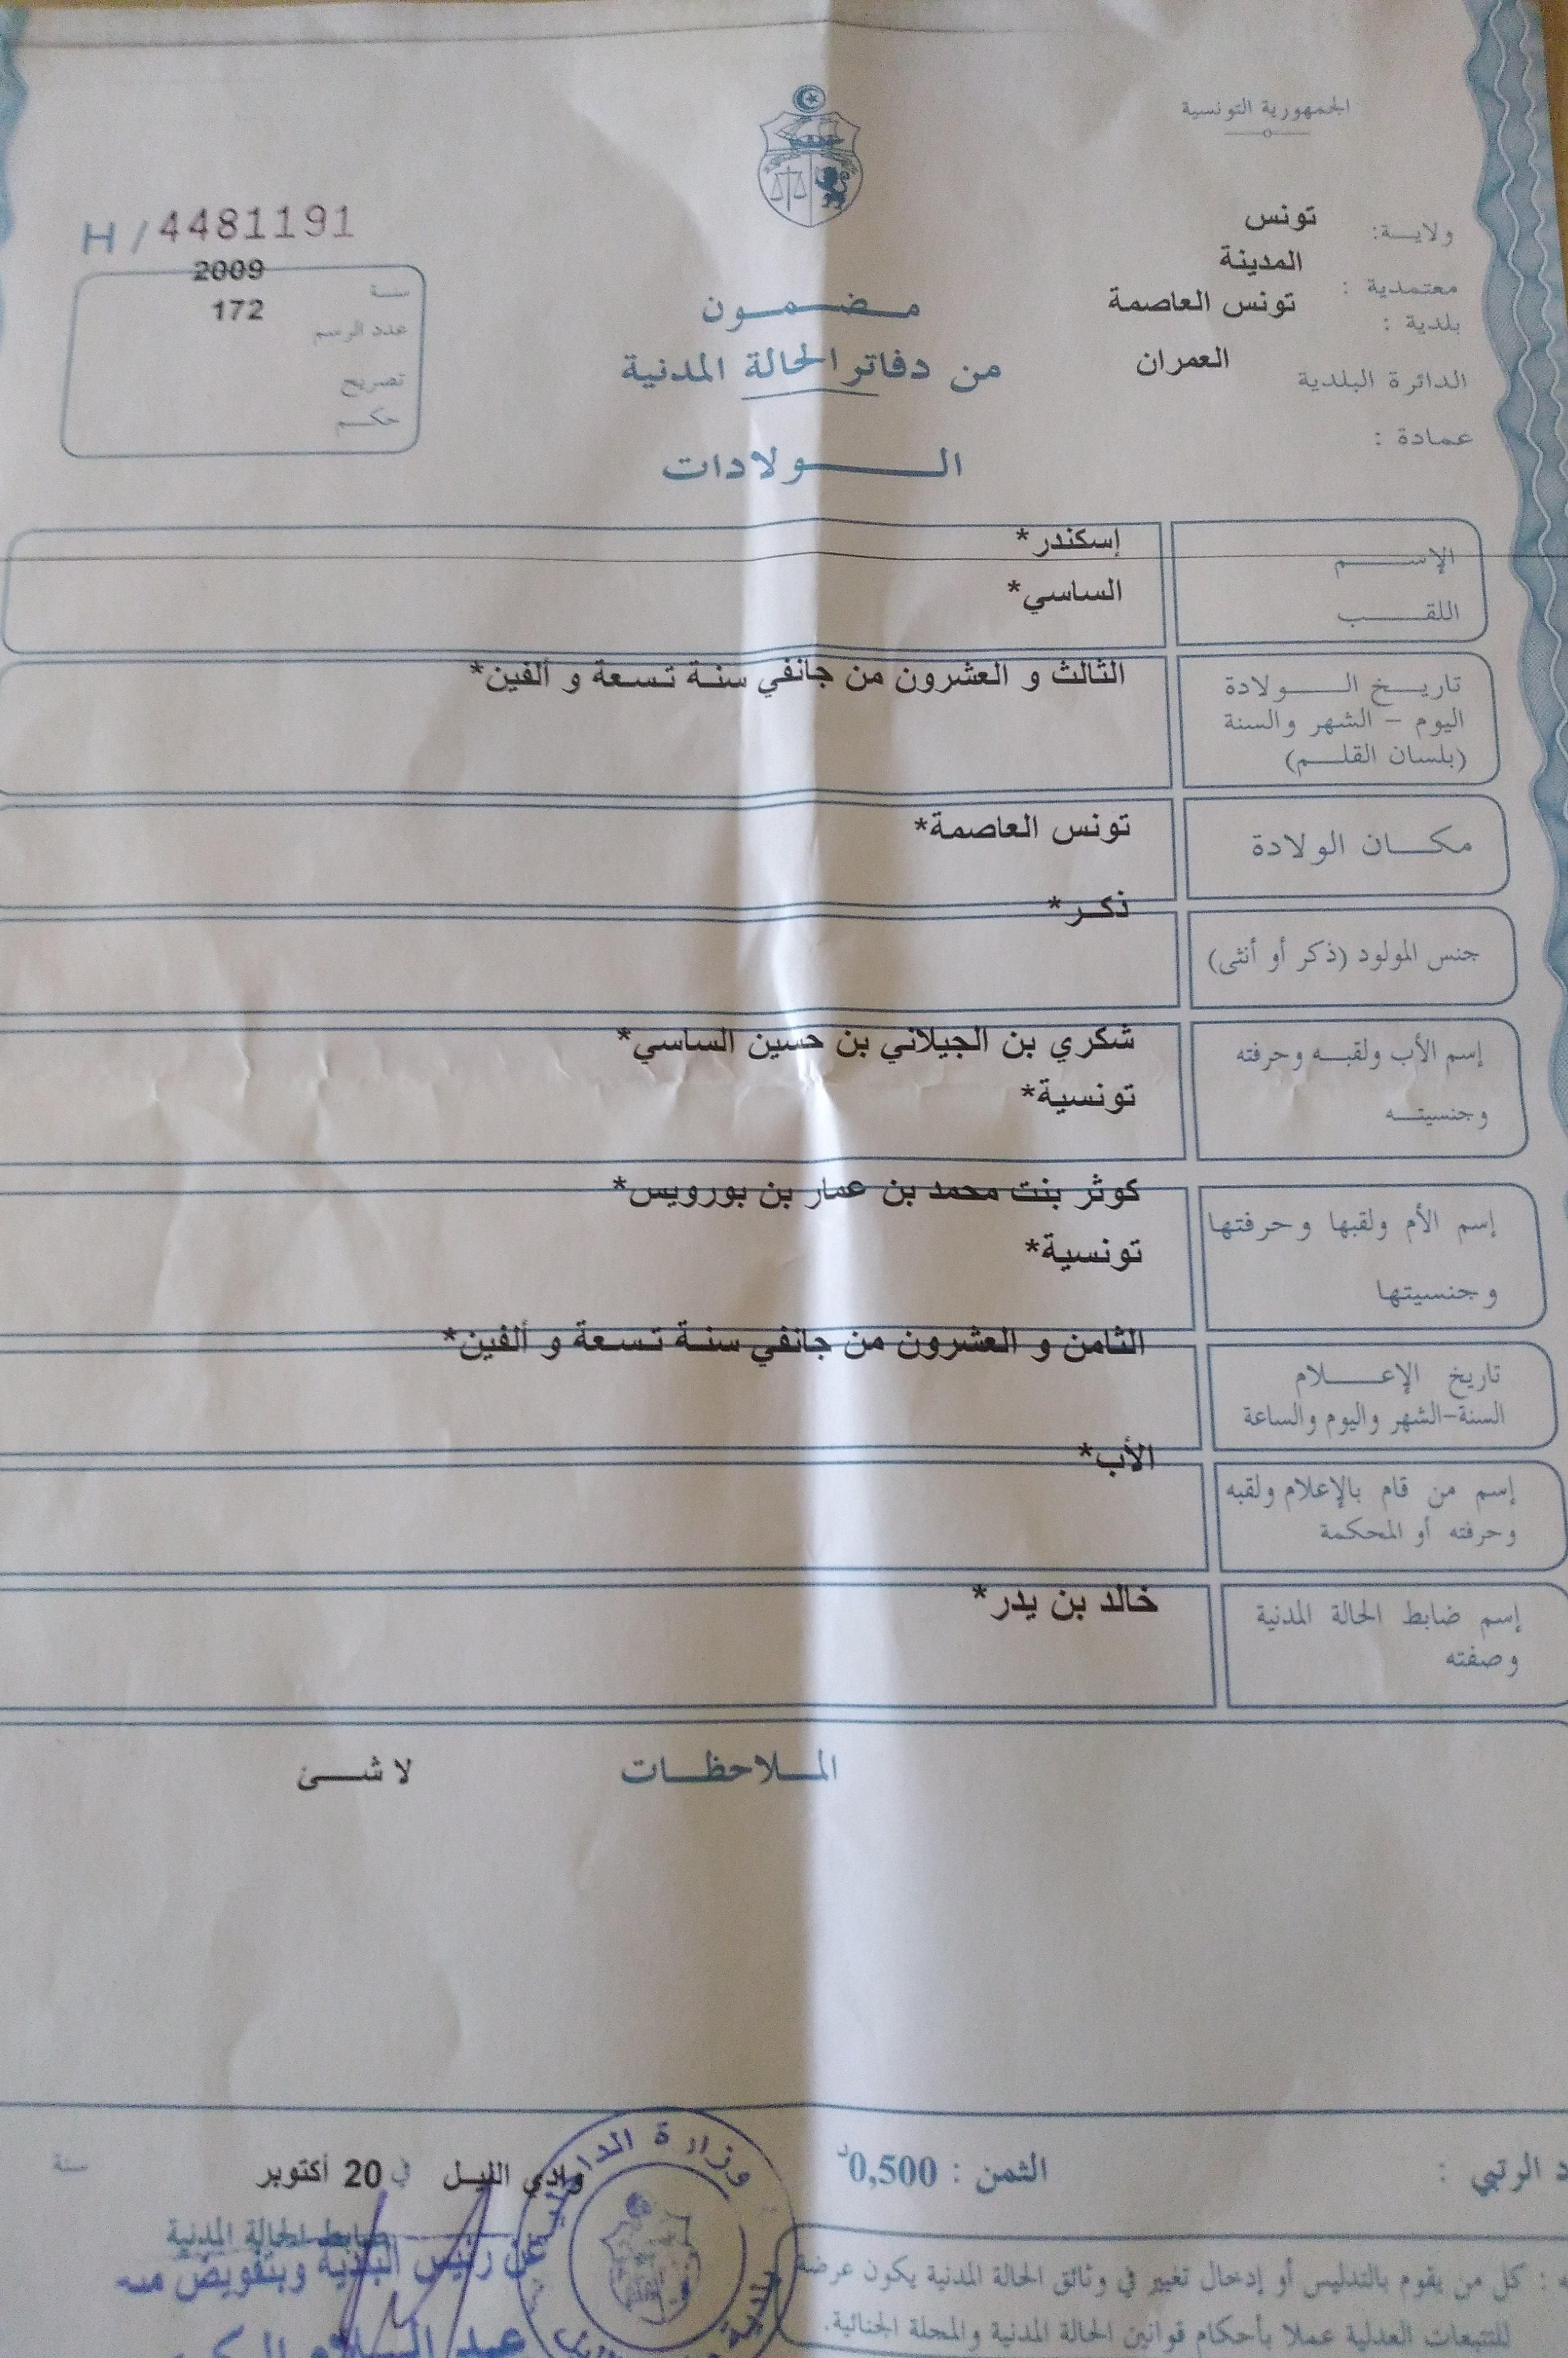 الجمهورية التونسية
ولايــة: تونس
معتمدية : المدينة
بلدية : تونس العاصمة
الدائرة البلدية العمران
عمادة :
مـضـمـون
من دفاتر الحالة المدنية
الـولادات
H / 4481191
سنة 2009
عدد الرسم 172
تصريح
حكم
الإسـم إسكندر*
اللقـب الساسي*
تاريـخ الـولادة الثالث و العشرون من جانفي سنة تسعة و ألفين*
اليوم - الشهر والسنة
(بلسان القلـم)
مكـان الولادة تونس العاصمة*
جنس المولود (ذكر أو أنثى) ذكـر*
إسم الأب ولقبـه وحرفته شكري بن الجيلاني بن حسين الساسي*
وجنسيتـه تونسية*
إسم الأم ولقبها وحرفتها كوثر بنت محمد بن عمار بن بورويس*
وجنسيتها تونسية*
تاريخ الإعـلام الثامن و العشرون من جانفي سنة تسعة و ألفين*
السنة-الشهر واليوم والساعة
إسم من قام بالإعلام ولقبه الأب*
وحرفته أو المحكمة
إسم ضابط الحالة المدنية خالد بن يدر*
وصفته
الملاحظـات لا شـئ
د الرتبي :
الثمن : 0,500د
وادي الليـل في 20 أكتوبر سنة
ضابط الحالة المدنية
عن رئيس البلدية وبتفويض منه
عبد السلام
وزارة الداخلية
بلدية
ه : كل من يقوم بالتدليس أو إدخال تغيير في وثائق الحالة المدنية يكون عرضة
للتتبعات العدلية عملا بأحكام قوانين الحالة المدنية والمجلة الجنائية.